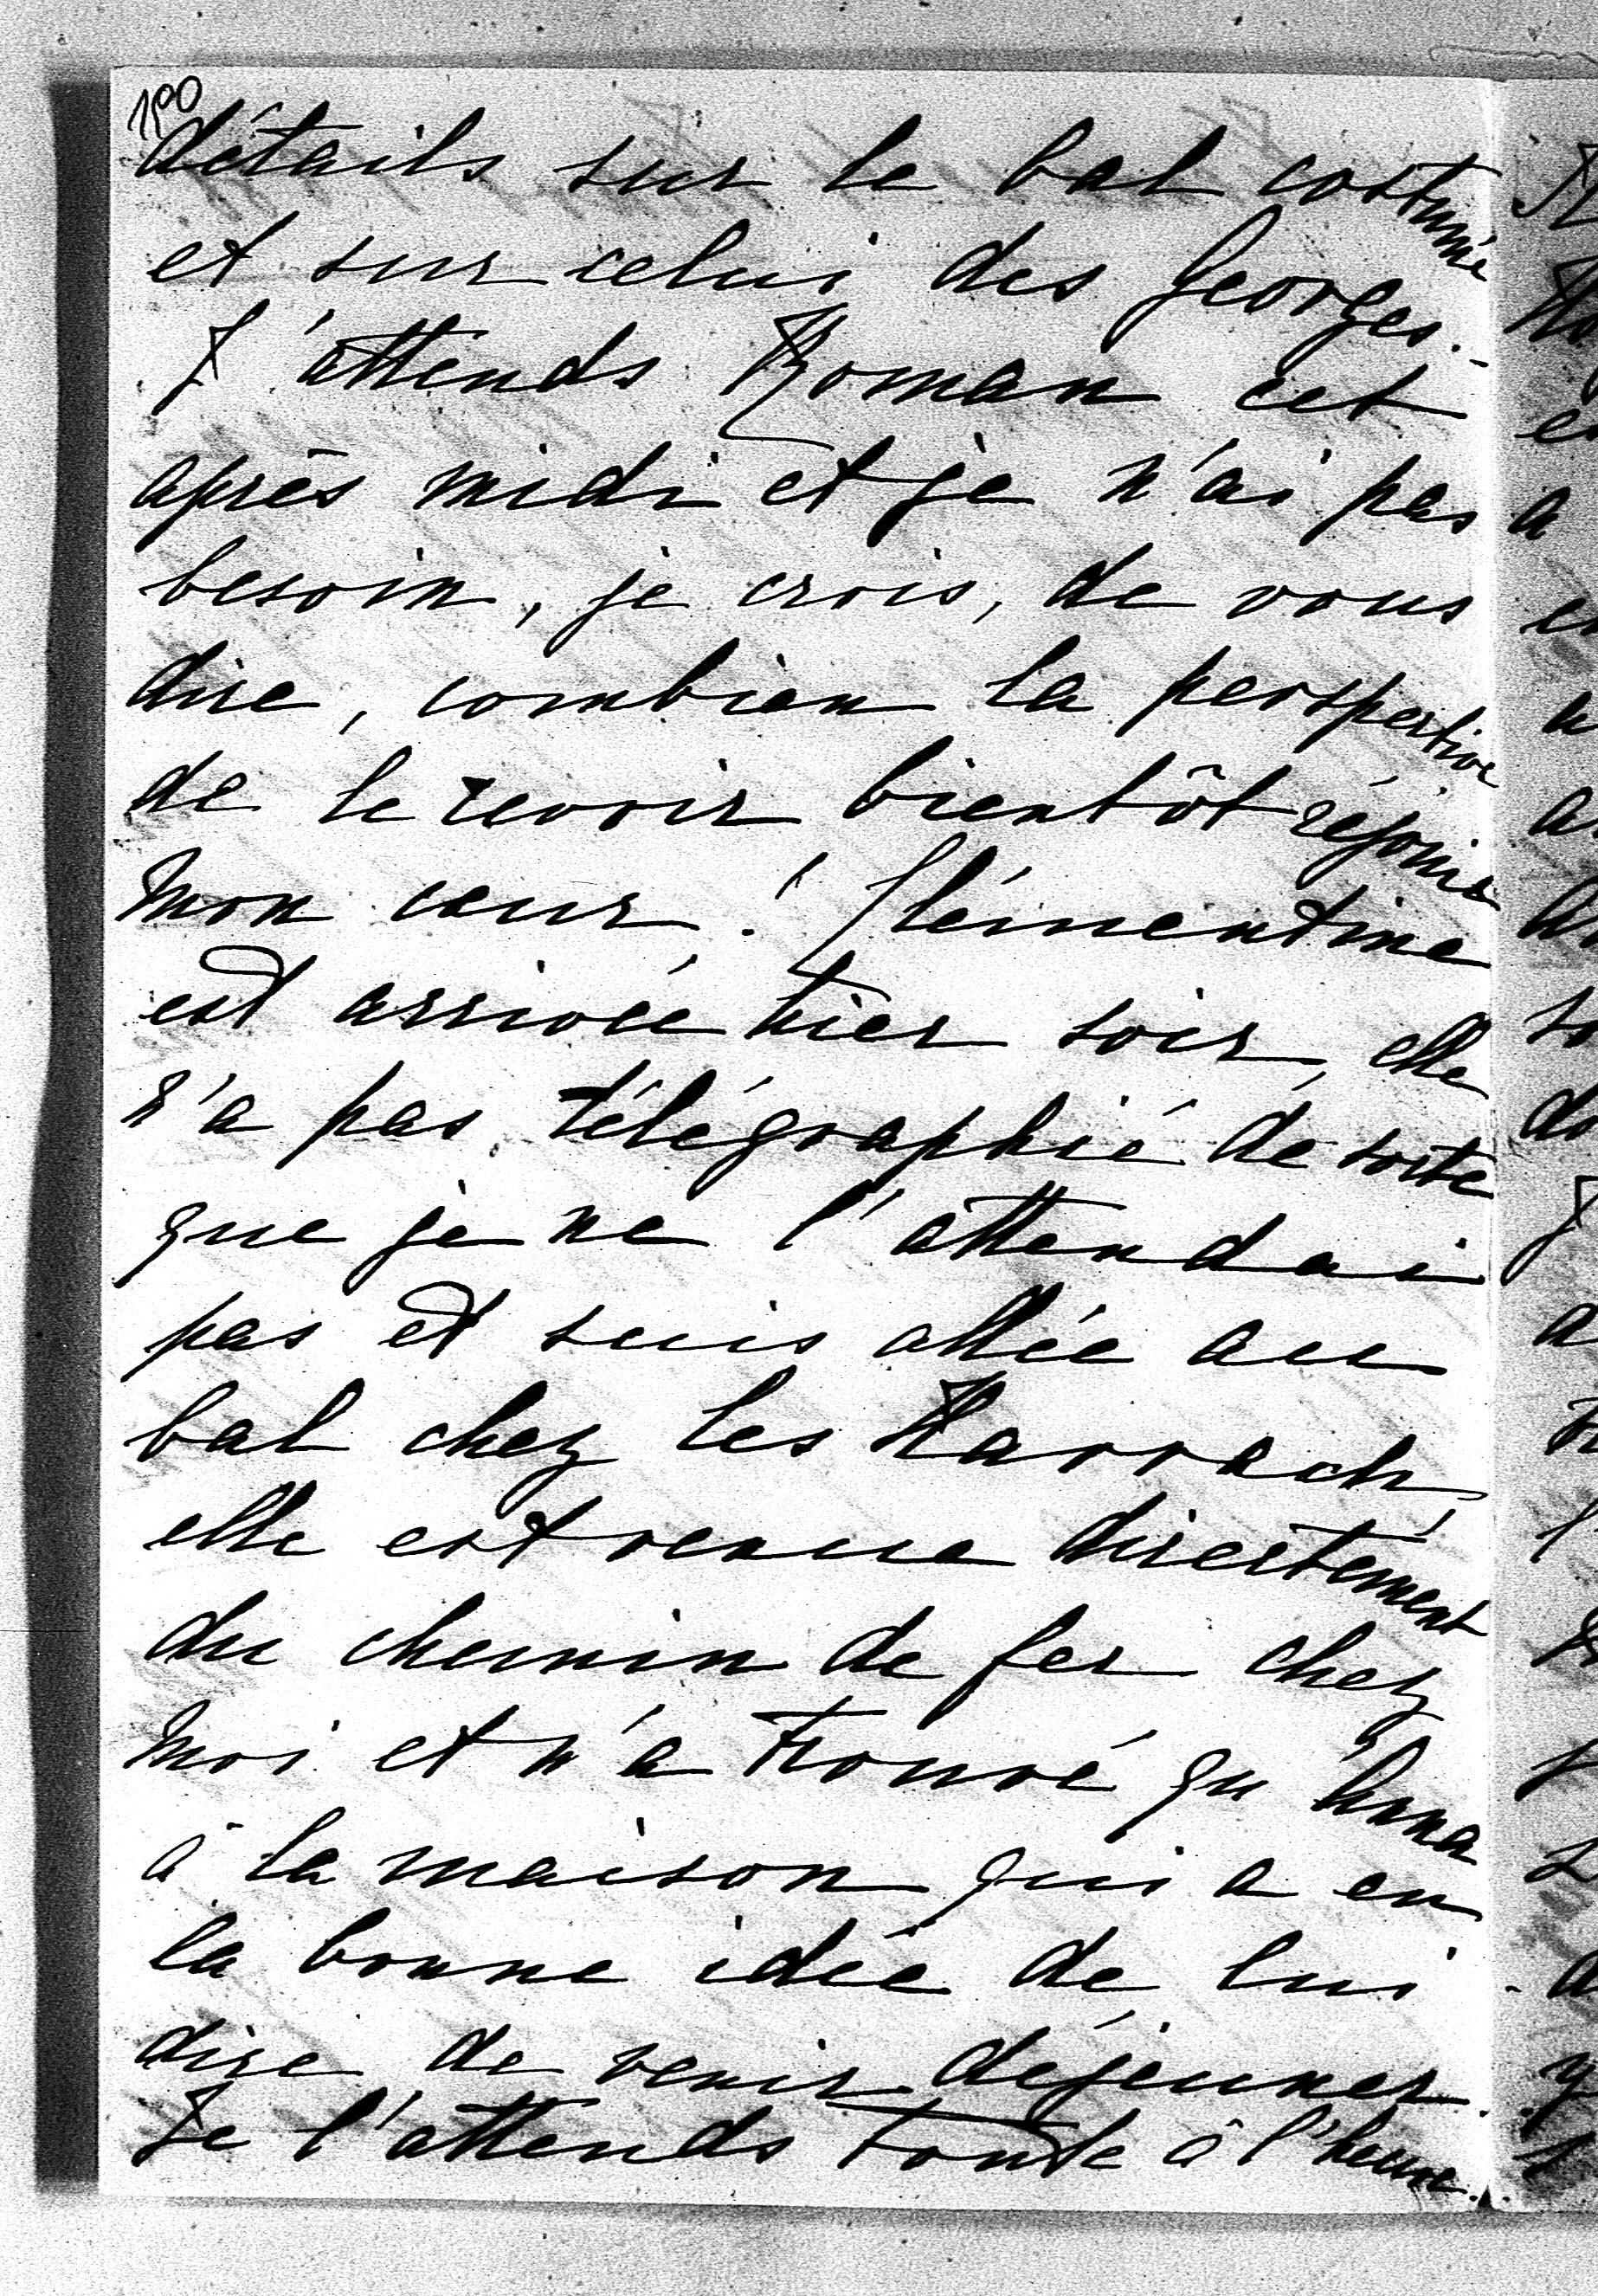 190
détails sur le bal costumé
et sur celui des Georges.-
J'attends Roman cet
après midi et je n'ai pas
besoin, je crois, de vous
dire, combien la perspective
de le revoir bientôt réjouis
mon cœur! Clémentine
est arrivée hier soir, elle
n'a pas télégraphié de sorte
que je ne l'attendai
pas et suis allée au
bal chez les Harrach,
elle est venue directement
du chemin de fer chez
moi et n'a trouvé qu'Anna
à la maison qui a eu
la bonne idée de lui
dire de venir déjeuner.
Je l'attends toute à l'heure.